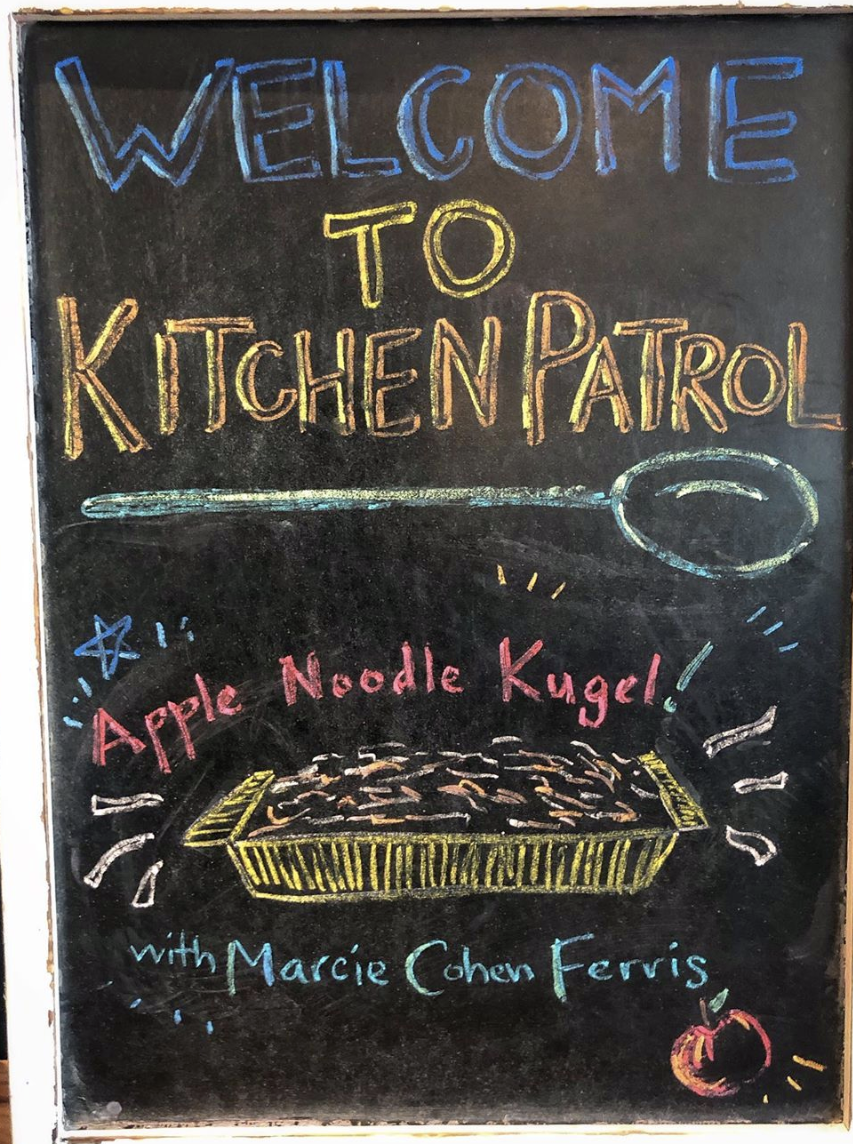 WELCOME
TO
KITCHEN PATROL
Apple Noodle Kugel!
with Marcie Cohen Ferris